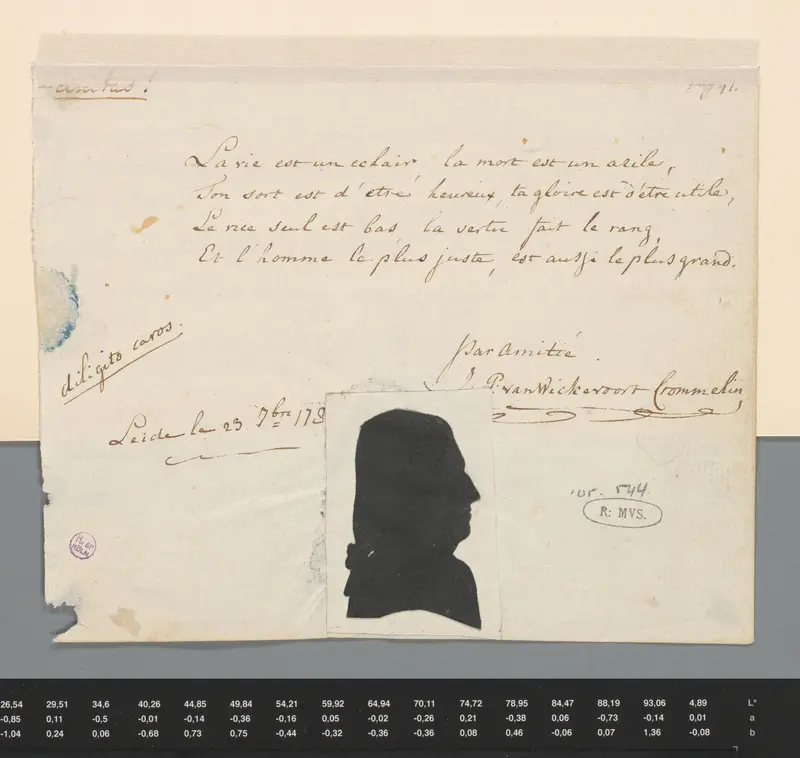 La vie est un eclair, la mort est un azile,
Ton sort est d'etre heureux, ta gloire est d'être utile,
Le vice seul est bas, la vertu fait le rang,
Et l'homme le plus juste, est aussi le plus grand.
diligito caros.
par amitié.
J. P: van Wickevoort Crommelin,
Leide le 23 7bre 178
544.
R: MVS.
26,54 29,51 34,6 40,26 44,85 49,84 54,21 59,92 64,94 70,11 74,72 78,95 84,47 88,19 93,06 4,89 L*
-0,85 0,11 -0,5 -0,01 -0,14 -0,36 -0,16 0,05 -0,02 -0,26 0,21 -0,38 0,06 -0,73 -0,14 0,01 a
-1,04 0,24 0,06 -0,68 0,73 0,75 -0,44 -0,32 -0,36 -0,36 0,08 0,46 -0,06 0,07 1,36 -0,08 b